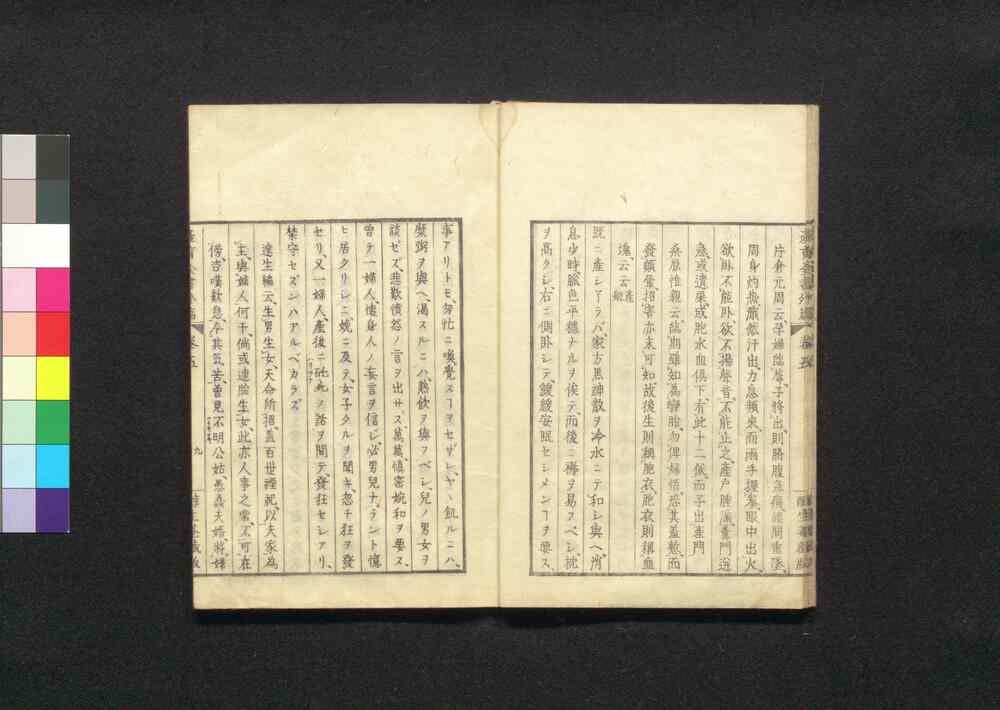 片倉元周云、孕婦臨蓐子將出、則腰腹急痛、腰間重墜、
周身灼熱、濈濈汗出、力怠頻來、而兩手握拳、眼中出火、
欲臥不能臥、欲不揚聲音、不能止之、產戶腫滿、肛門逆
急、或遺屎、或胞水血俱下、有此十二候、而子出產門
桑原惟親云、臨期雖知為孿胎、勿俾婦悟、恐其羞慙而
發顛暈、招害亦未可知、故後生則續胞衣、胞衣則續血
塊、云云
既ニ產シ了ラバ、家方黑神散ヲ冷水ニテ和シ與ヘ、稍
息少時、脈色平穩ナルヲ俟テ、而後ニ褥ヲ易フベシ、枕
ヲ高クシ、右ニ側臥シテ、緩緩安眠セシメンヿヲ要ス、
事アリトモ、匆忙ニ喚覺スヿヲセザレ、ヤヽ飢ルニハ、
糜粥ヲ與ヘ、渴スルニハ熱飲ヲ與フベシ、兒ノ男女ヲ
談ゼズ、悲歎憤怨ノ言ヲ出サズ、萬萬愼密婉和ヲ要ス、
曾テ一婦人、懷身人ノ妄言ヲ信シ、必男兒ナラント憶
ヒ居タリシニ、娩ニ及テ、女子タルヲ聞キ、忽チ狂ヲ發
セリ、又一婦人、產後ニノ話ヲ聞テ、發狂セシアリ、
禁守セズンハアルベカラズ
達生編云、生男生女、天命所招、蓋百世禋祀、以夫家為
主、與婦人何干、倘或連胎生女、此亦人事之常、不可在
傍、咨嗟歎息、卒其氣苦、曾見不明公姑、愚蠢夫婿、將婦
卷五
九